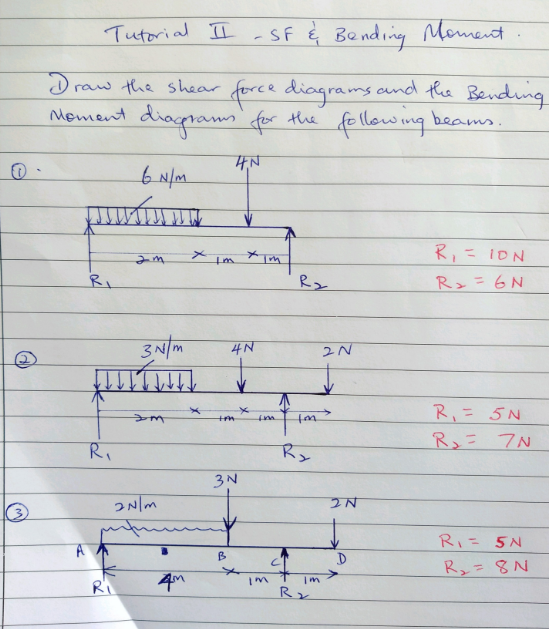 Tutorial II - SF & Bending Moment.
Draw the shear force diagrams and the Bending
Moment diagrams for the following beams.
①.
4N
6 N/m
2m × 1m × 1m
R₁ R₂
R₁ = 10N
R₂ = 6N
②
3N/m 4N 2N
2m × 1m × 1m 1m
R₁ R₂
R₁ = 5N
R₂ = 7N
③
3N
2N/m 2N
A B C D
4m × 1m 1m
R₁ R₂
R₁ = 5N
R₂ = 8N